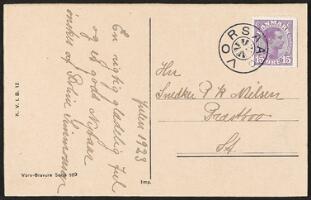 En rigtig glædelig Jul
og et godt Nytaar
ønskes af Stine Simonsen
Julen 1923
K. V. I. B. 12
Vore-Bravure Serie 169
Imp.
VORSAA
DANMARK
15 ØRE 15
Hr
Snedker P. W. Nielsen
Præstbro
St.